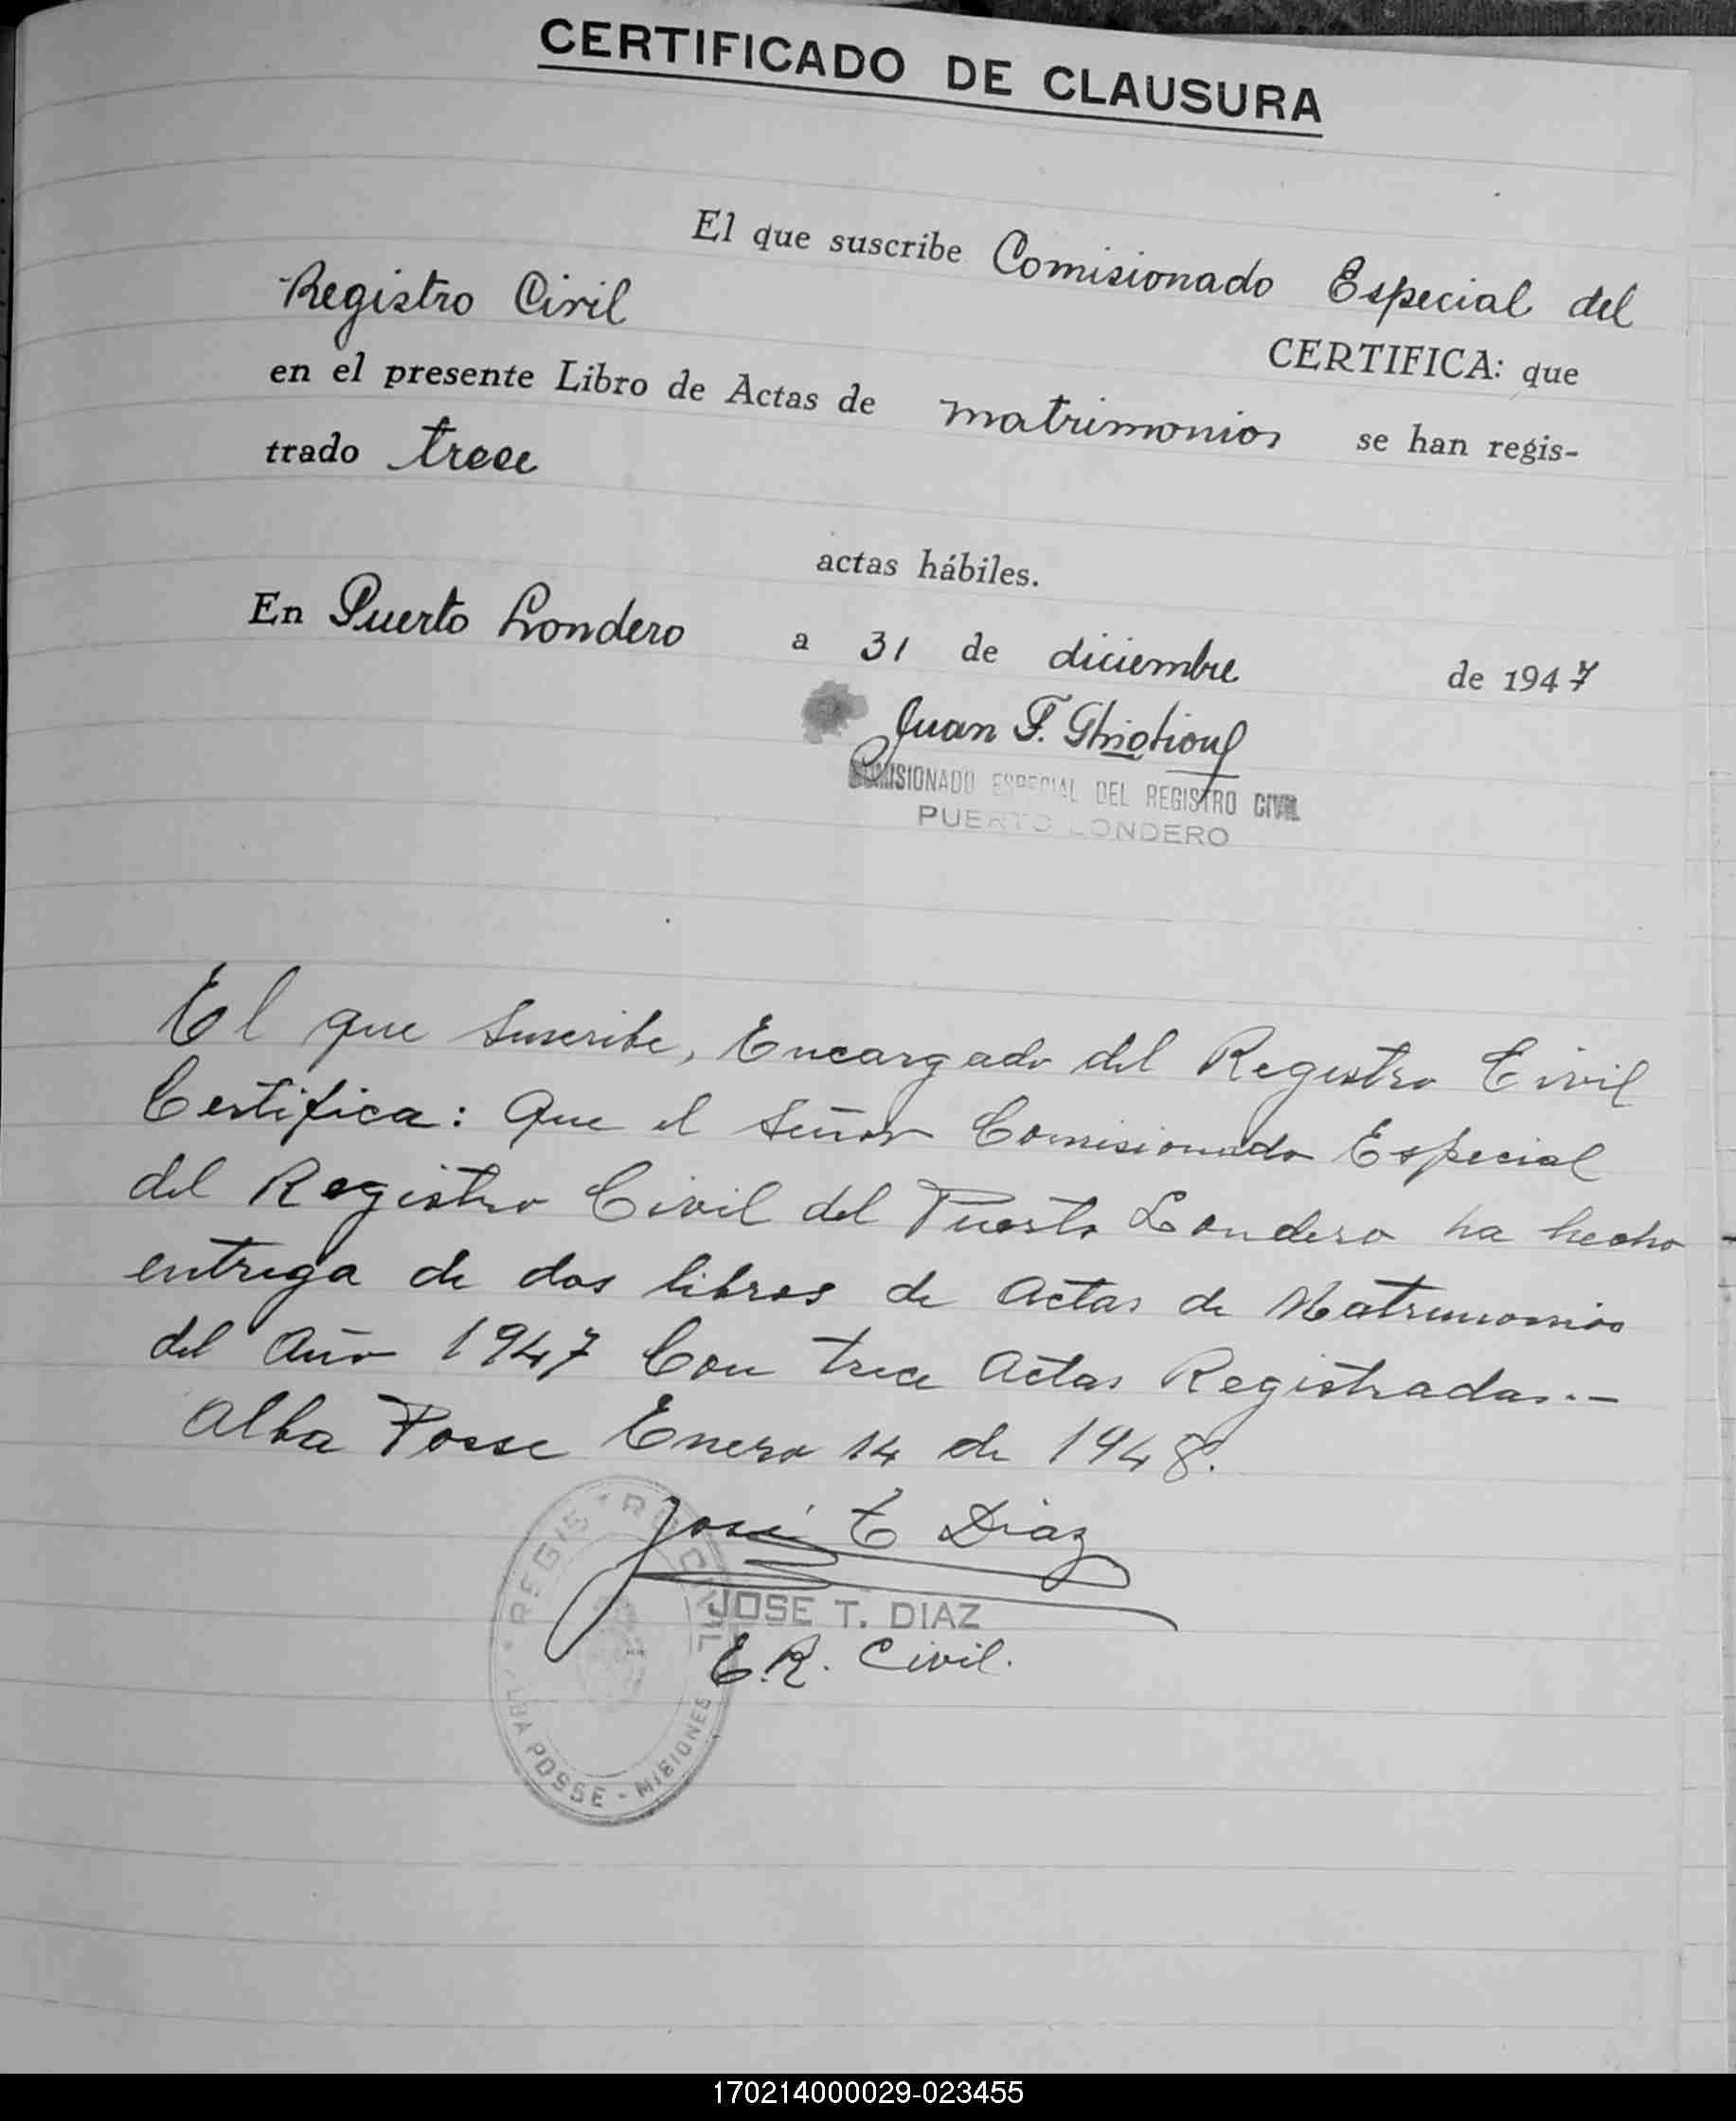 CERTIFICADO DE CLAUSURA
El que suscribe Comisionado Especial del
Registro Civil
CERTIFICA: que
en el presente Libro de Actas de matrimonios se han regis-
trado trece
actas hábiles.
En Puerto Londero a 31 de diciembre de 1947
Juan F.
COMISIONADO ESPECIAL DEL REGISTRO CIVIL
PUERTO LONDERO
El que suscribe, Encargado del Registro Civil
Certifica: Que el Señor Comisionado Especial
del Registro Civil del Puerto Londero ha hecho
entrega de dos libros de Actas de Matrimonios
del Año 1947 Con trece Actas Registradas.-
Alba Posse Enero 14 de 1948.
José T Diaz
JOSE T. DIAZ
E.R. Civil.
REGISTRO CIVIL
ALBA POSSE - MISIONES
170214000029-023455